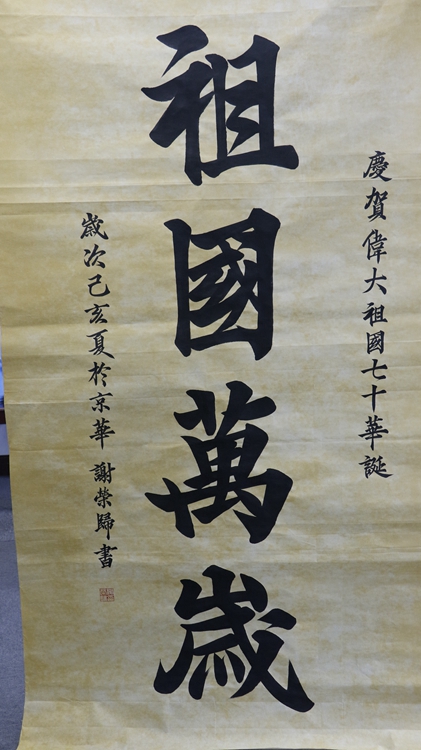 慶賀偉大祖國七十華誕
祖國萬歲
歲次己亥夏於京華 謝榮歸書